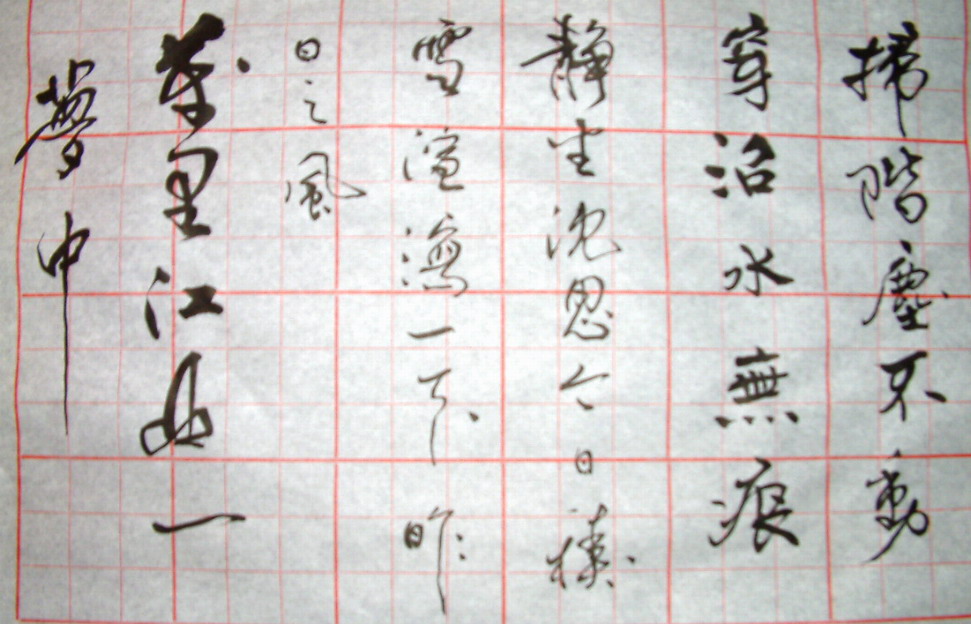 掃階塵不動
穿沼水無痕
靜坐沈思今日
雪渲一下昨
日之風
萬里江山一
夢中